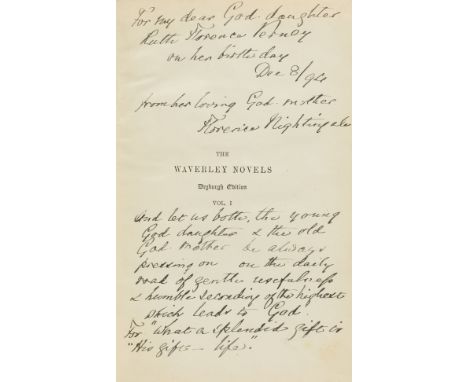 For my dear God-daughter
Ruth Florence Verney
on her birthday
Dec 8/94
from her loving God-mother
Florence Nightingale
THE
WAVERLEY NOVELS
Dryburgh Edition
VOL. I
And let us both, the young
God daughter & the old
God-mother be always
pressing on on the daily
road of gentle usefulness
& humble seconding of the highest
which leads to God.
For "What a splendid gift in
"His gifts – life".